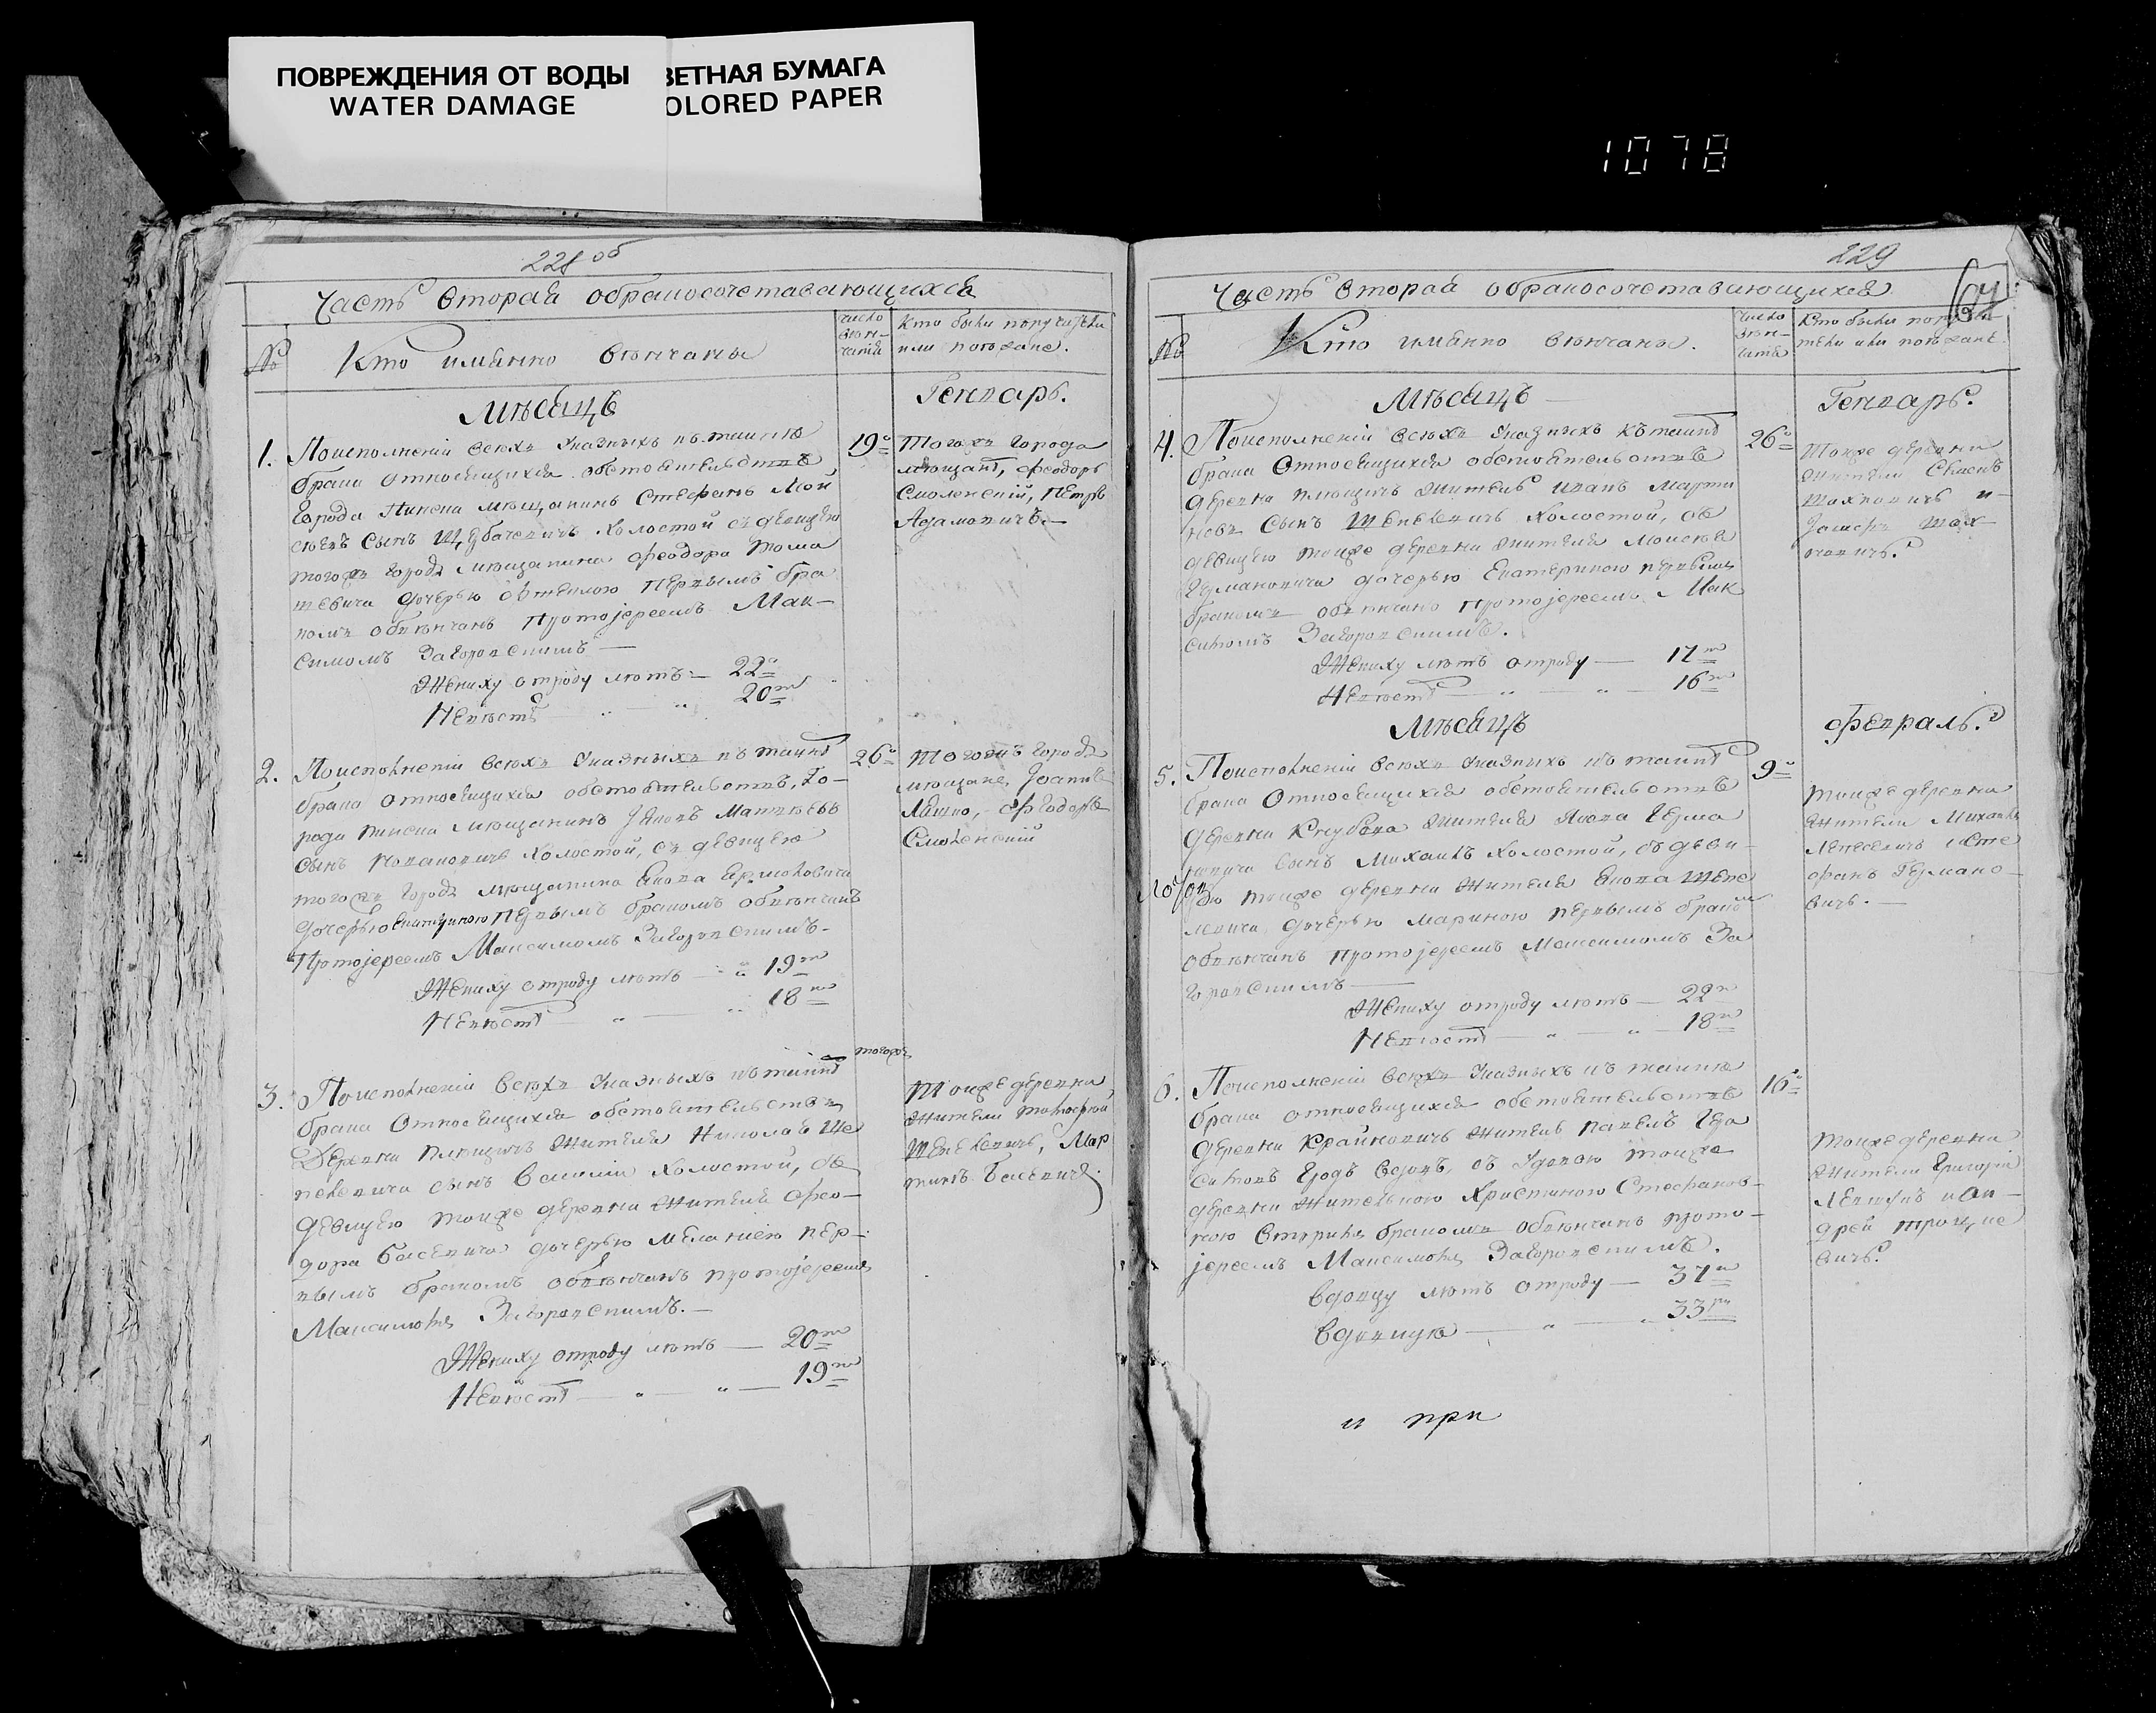 ПОВРЕЖДЕНИЯ ОТ ВОДЫ
WATER DAMAGE
ВЕТНАЯ БУМАГА
OLORED PAPER
1078
228 об
Часть вторая о бракосочетавающихся
№
Кто имянно венчаны
число венчания
Кто были поручители или поезжане.
Мѣсяцъ
Генварь.
1. Поисполненіи всѣхъ указныхъ къ таинѣ
брака относящихся обстоятельствъ
города Пинска мѣщанинъ Стефанъ Мой
сѣевъ сынъ Щербачевичъ холостой съ девицею
тогожъ города мѣщанина Феодора Тома
шевича дочерью первымъ бра
комъ обвѣнчанъ Протоjереемъ Мак-
симомъ Загоровскимъ
Жениху отроду лѣтъ 22
Невѣстѣ 20
19
Тогожъ города
мѣщане, Феодоръ
Смоленскій, Петръ
Адамовичъ.
2. Поисполненіи всѣхъ указныхъ къ таинѣ
брака относящихся обстоятельствъ, го-
рода Пинска мѣщанинъ Яковъ Матѣевъ
сынъ холостой, съ девицею
тогожъ города мѣщанина Якова Ермоловича
дочерью Екатериною первымъ бракомъ обвѣнчанъ
Протоjереемъ Максимомъ Загоровскимъ-
Жениху отроду лѣтъ 19
Невѣстѣ 18
26
Тогожъ города
мѣщане, Jоаннъ
Ляшко, Феодоръ
Смоленскій
3. Поисполненіи всѣхъ указныхъ къ таинѣ
брака относящихся обстоятельствъ
Деревни Плещичъ жителя Николая Ше
пелевича сынъ Василій холостой, съ
девицею тоиже деревни жителя Фео-
дора Басевича дочерью Меланіею пер-
вымъ бракомъ обвѣнчанъ протоjереемъ
Максимомъ Загоровскимъ.
Жениху отроду лѣтъ 20
Невѣстѣ 19
тогожъ
Тоиже деревни
жители Тимофей
Шепелевичъ, Мар
тинъ Басевичъ.
229
Часть вторая о бракосочетавающихся
№
Кто имянно венчаны.
число венчания
Кто были поручители или поезжане.
Мѣсяцъ
Генварь.
4. Поисполненіи всѣхъ указныхъ къ таинѣ
брака относящихся обстоятельствъ
деревни Плещичъ житель Иванъ Марти
новъ сынъ Шепелевичъ холостой, съ
девицею тоиже деревни жителя Моисея
Германовича дочерью Екатериною первымъ
бракомъ обвѣнчанъ Протоjереемъ Мак
симомъ Загоровскимъ.
Жениху лѣтъ отроду 17
Невѣстѣ 16
26
Тоиже деревни
жители
и
Мѣсяцъ
Февраль.
5. Поисполненіи всѣхъ указныхъ къ таинѣ
брака относящихся обстоятельствъ
деревни жителя Якова Герма
новича сынъ Михаилъ холостой, съ деви-
цею тоиже деревни жителя Якова Шепе
левича дочерью Мариною первымъ бракомъ
обвѣнчанъ протоjереемъ Максимомъ За
горовскимъ
Жениху отроду лѣтъ 22
Невѣстѣ 18
9
Тоиже деревни
жители Михаилъ
и Сте
фанъ Германо-
вичъ.
6. Поисполненіи всѣхъ указныхъ къ таинѣ
брака относящихся обстоятельствъ
деревни Крайновичъ житель Павелъ Гера
симовъ вдовъ, съ удовою тоиже
деревни жителькою Христиною Стефанов-
ною бракомъ обвѣнчанъ прото-
jереемъ Максимомъ Загоровскимъ.
Вдовцу лѣтъ отроду 37
Вдовицѣ 33
16
Тоиже деревни
жители Григорій
Левчукъ и Ан-
дрей Троцке
вичъ.
и при